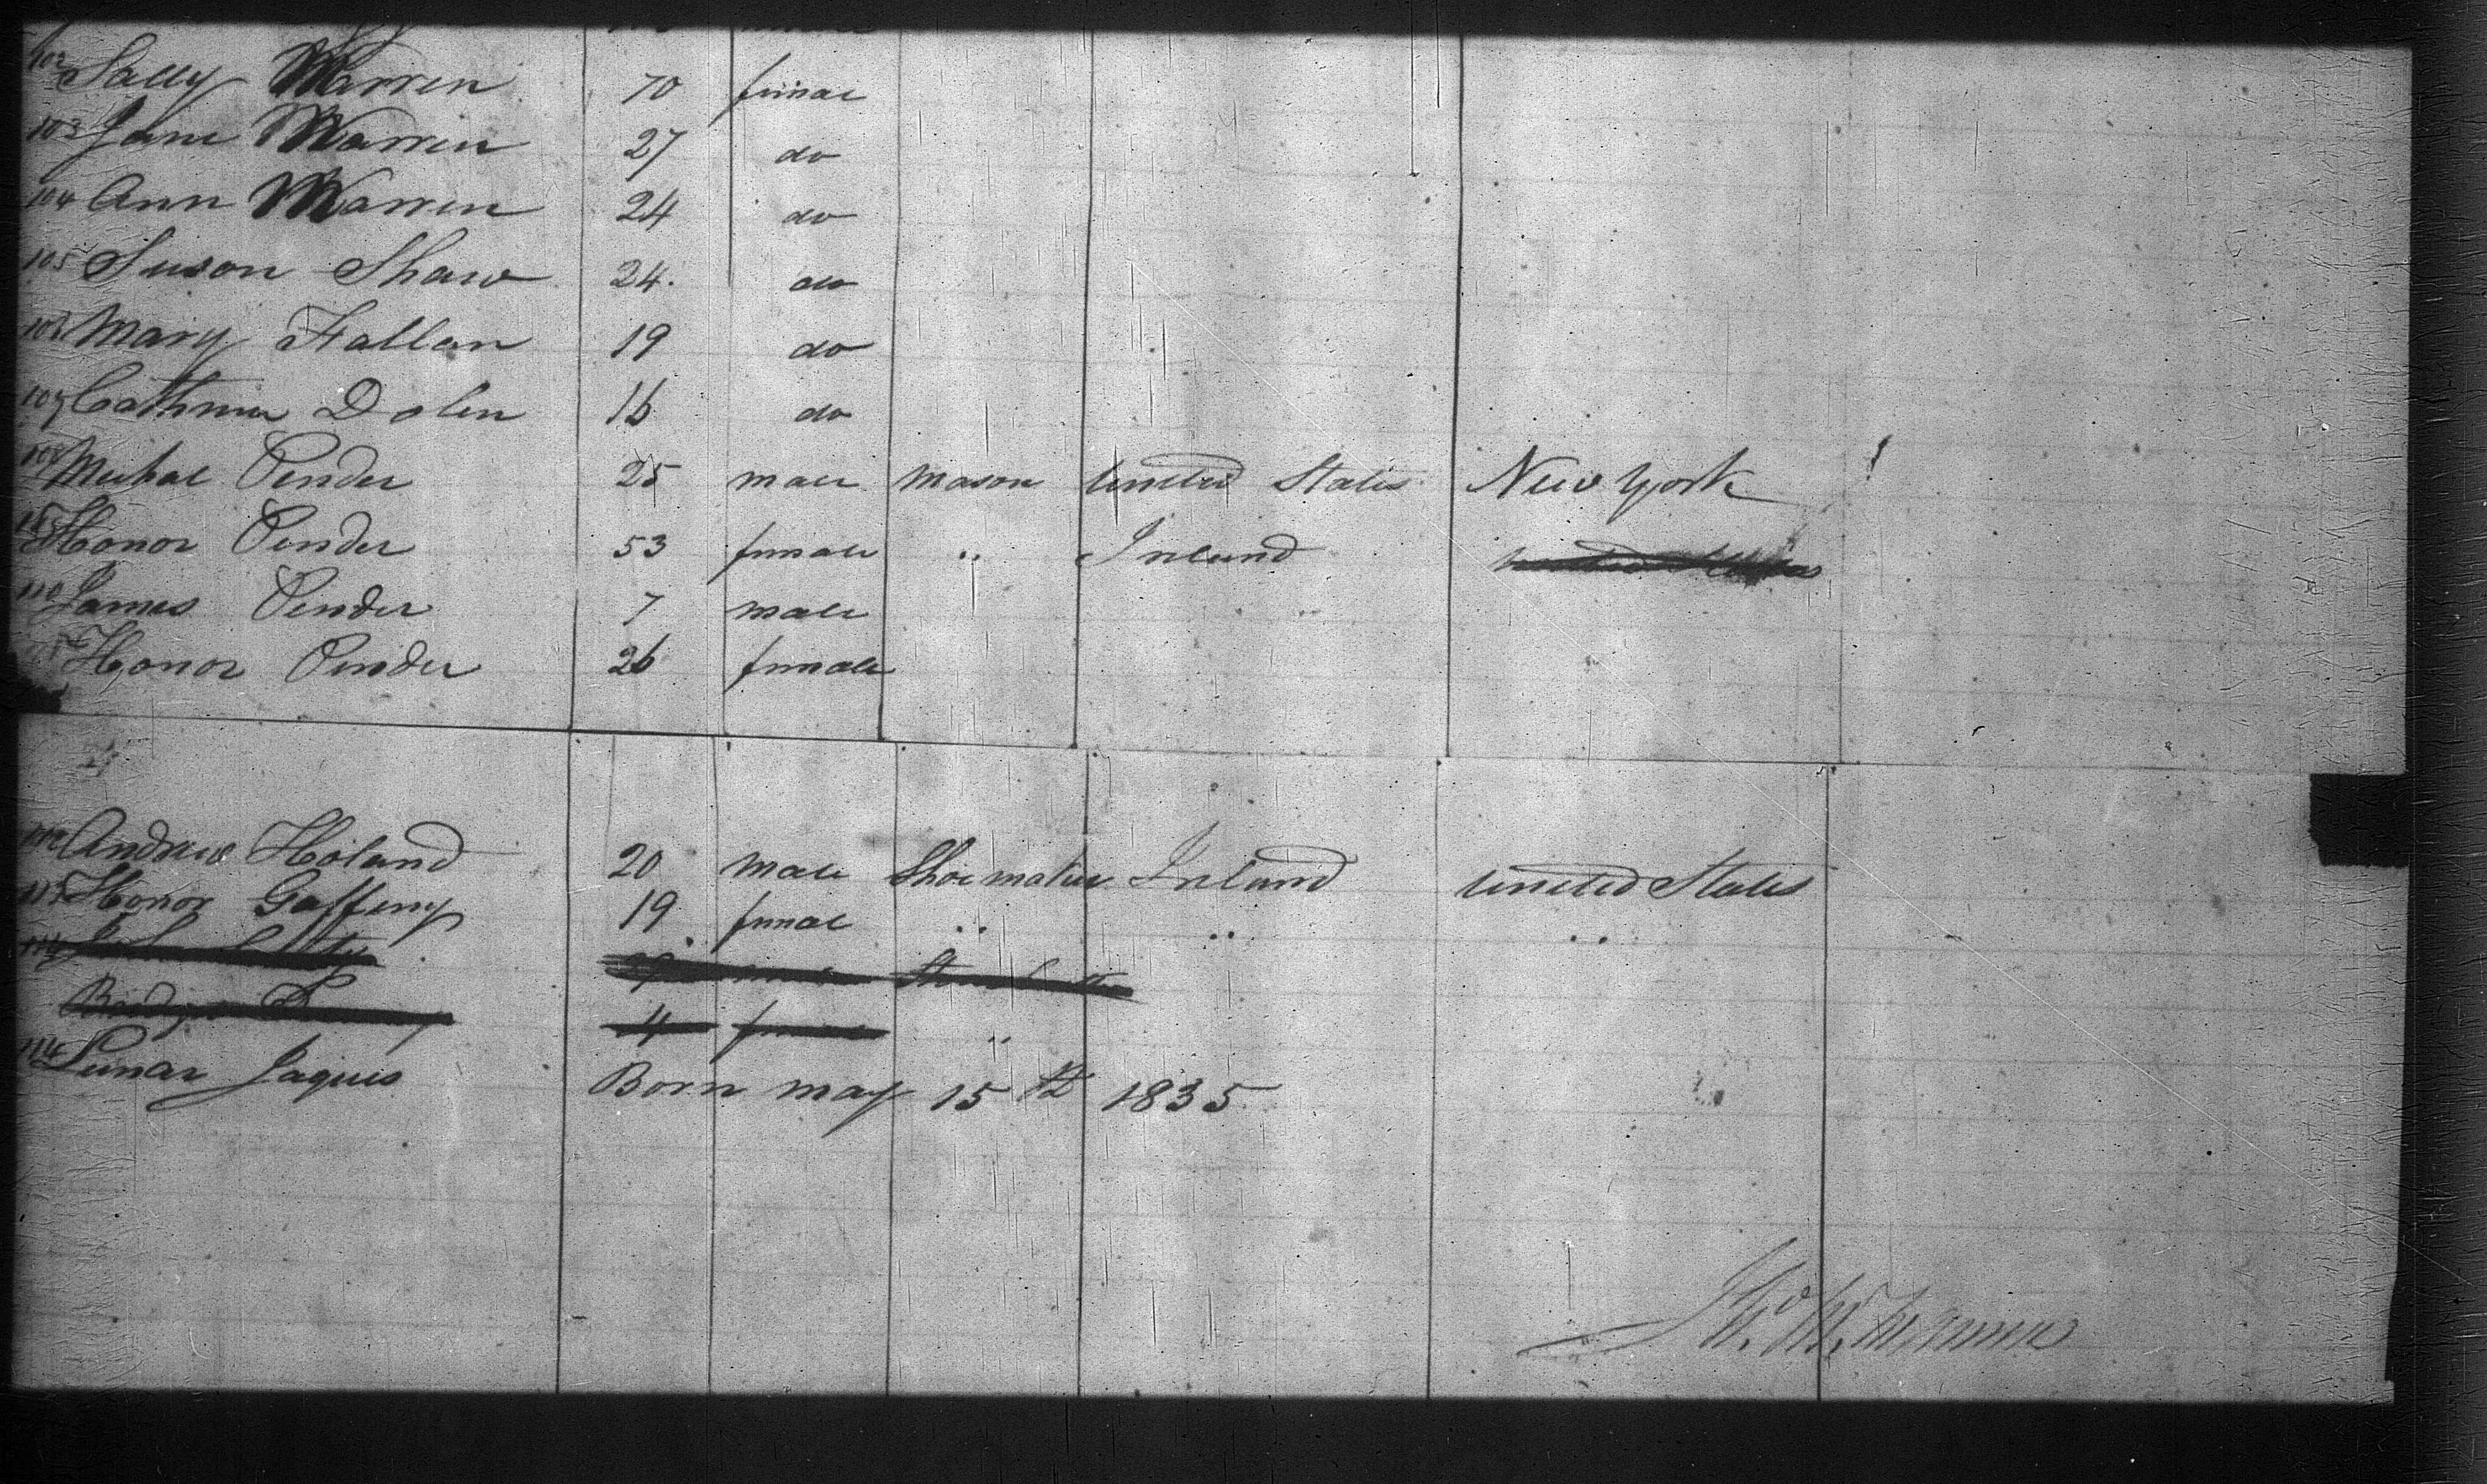 102 Sally Warren 70 female
103 Jane Warren 27 do
104 Ann Warren 24 do
105 Suson Shaw 24. do
106 Mary Fallan 19 do
107 Dolen 16 do
108 Michal Pender 25 male Mason United States New York
109 Honor Pender 53 female " Ireland
110 James Pender 7 male
Honor Pender 26 female
112 Andrew Holand 20 Male Shoemaker Ireland United States
113 Honor Gaffeny 19 female " " "
114
4 female "
114 Lunar Jaques Born may 15th 1835